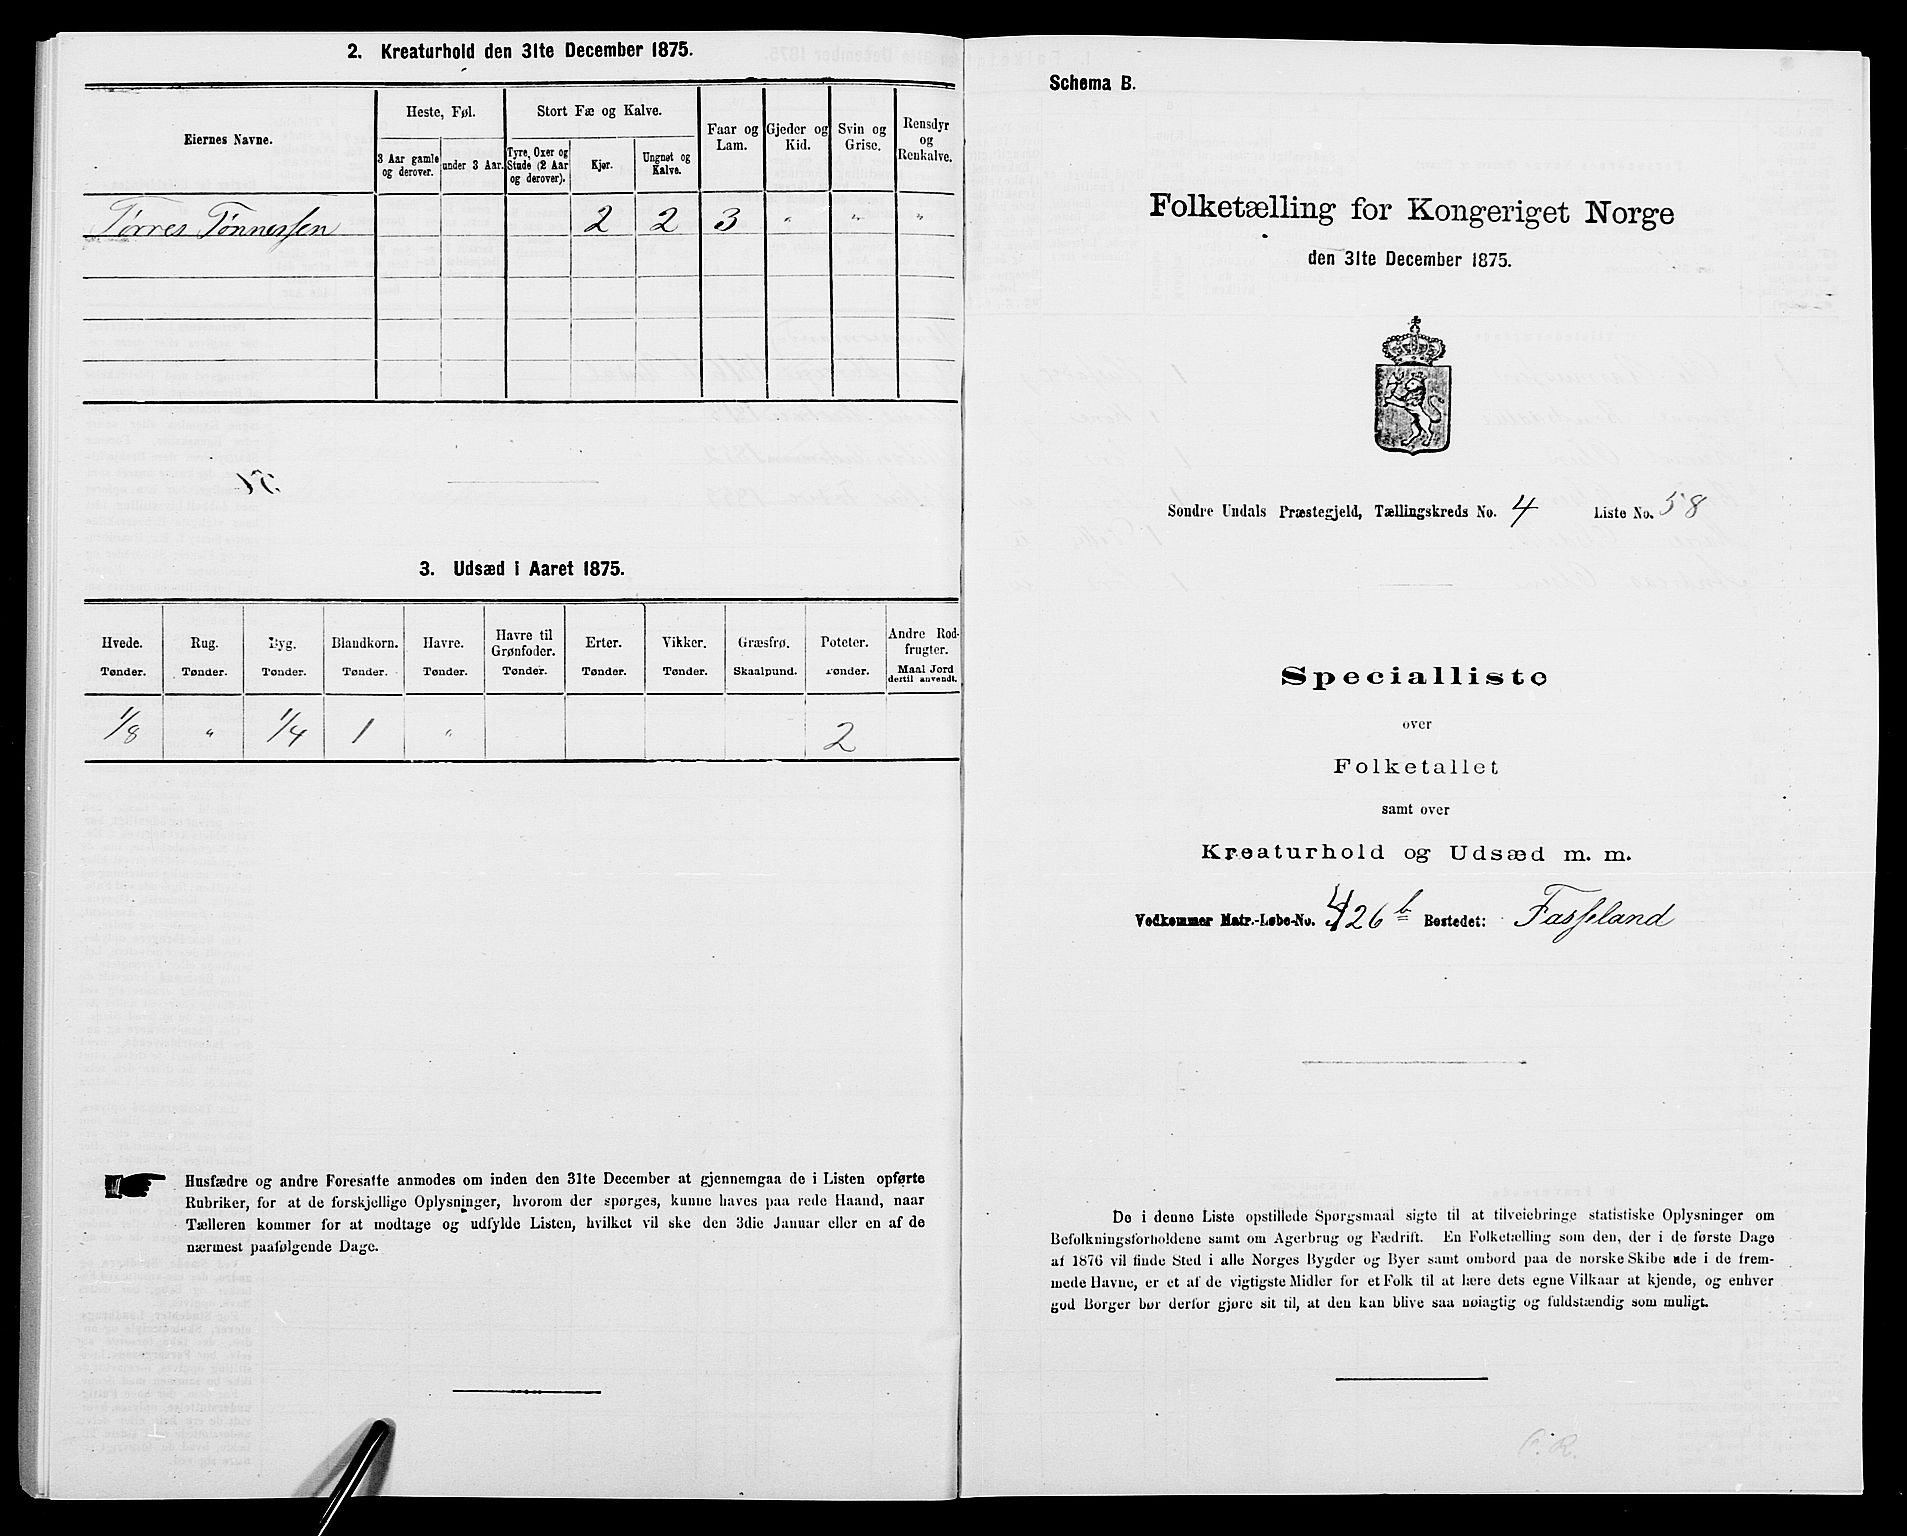 2. Kreaturhold den 31te December 1875.
Eiernes Navne.
Heste, Føl.
Stort Fæ og Kalve.
Faar og Lam.
Gjeder og Kid.
Svin og Grise.
Rensdyr og Renkalve.
3 Aar gamle og derover.
under 3 Aar.
Tyre, Oxer og Stude (2 Aar og derover).
Kjør.
Ungnøt og Kalve.
Tørres Tønnessen 2 2 3 " " "
3. Udsæd i Aaret 1875.
Hvede. Rug. Byg. Blandkorn. Havre. Havre til Grønfoder. Erter. Vikker. Græsfrø. Poteter. Andre Rodfrugter.
Tønder. Tønder. Tønder. Tønder. Tønder. Tønder. Tønder. Tønder. Skaalpund. Tønder. Maal Jord dertil anvendt.
1/8 " 1/4 1 " 2
Husfædre og andre Foresatte anmodes om inden den 31te December at gjennemgaa de i Listen opførte
Rubriker, for at de forskjellige Oplysninger, hvorom der spørges, kunne haves paa rede Haand, naar
Tælleren kommer for at modtage og udfylde Listen, hvilket vil ske den 3die Januar eller en af de
nærmest paafølgende Dage.
Schema B.
Folketælling for Kongeriget Norge
den 31te December 1875.
Søndre Undals Præstegjeld, Tællingskreds No. 4 Liste No. 58
Specialliste
over
Folketallet
samt over
Kreaturhold og Udsæd m. m.
Vedkommer Matr.-Løbe-No. 426 b Bostedet: Fasseland
De i denne Liste opstillede Spørgsmaal sigte til at tilveiebringe statistiske Oplysninger om
Befolkningsforholdene samt om Agerbrug og Fædrift. En Folketælling som den, der i de første Dage
af 1876 vil finde Sted i alle Norges Bygder og Byer samt ombord paa de norske Skibe ude i de frem-
mede Havne, er et af de vigtigste Midler for et Folk til at lære dets egne Vilkaar at kjende, og enhver
god Borger bør derfor gjøre sit til, at den kan blive saa nøiagtig og fuldstændig som muligt.